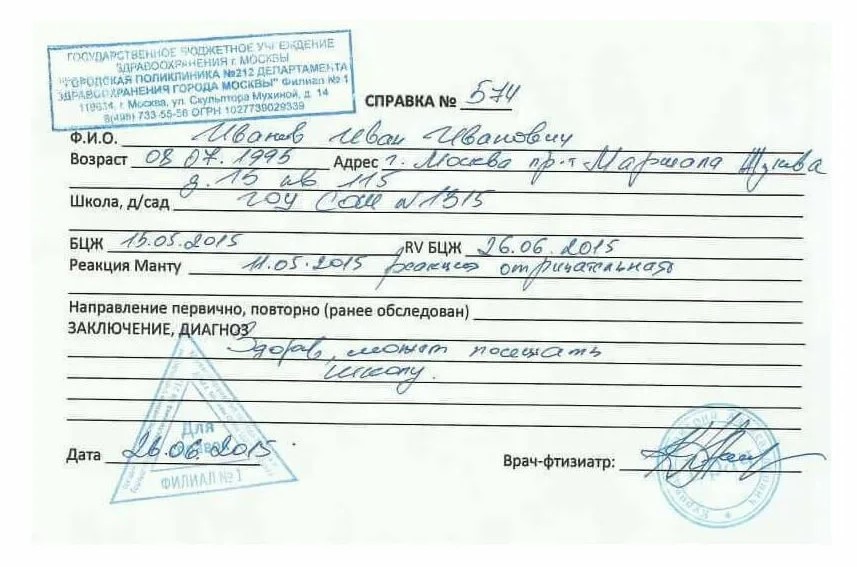 ГОСУДАРСТВЕННОЕ БЮДЖЕТНОЕ УЧРЕЖДЕНИЕ
ЗДРАВООХРАНЕНИЯ г. МОСКВЫ
"ГОРОДСКАЯ ПОЛИКЛИНИКА №212 ДЕПАРТАМЕНТА
ЗДРАВООХРАНЕНИЯ ГОРОДА МОСКВЫ" Филиал № 1
119634, г. Москва, ул. Скульптора Мухиной, д. 14
8(499) 733-55-56 ОГРН 1027739029339
СПРАВКА № 574
Ф.И.О. Иванов Иван Иванович
Возраст 08.07.1995 Адрес г. Москва пр-т Маршала Жукова
д. 15 кв 115
Школа, д/сад ГОУ СОШ N1315
БЦЖ 15.05.2015 RV БЦЖ 26.06.2015
Реакция Манту 11.05.2015 реакция отрицательная
Направление первично, повторно (ранее обследован)
ЗАКЛЮЧЕНИЕ, ДИАГНОЗ
Здоров, может посещать
школу.
Для
Дата 26.06.2015.
Врач-фтизиатр:
ФИЛИАЛ №1